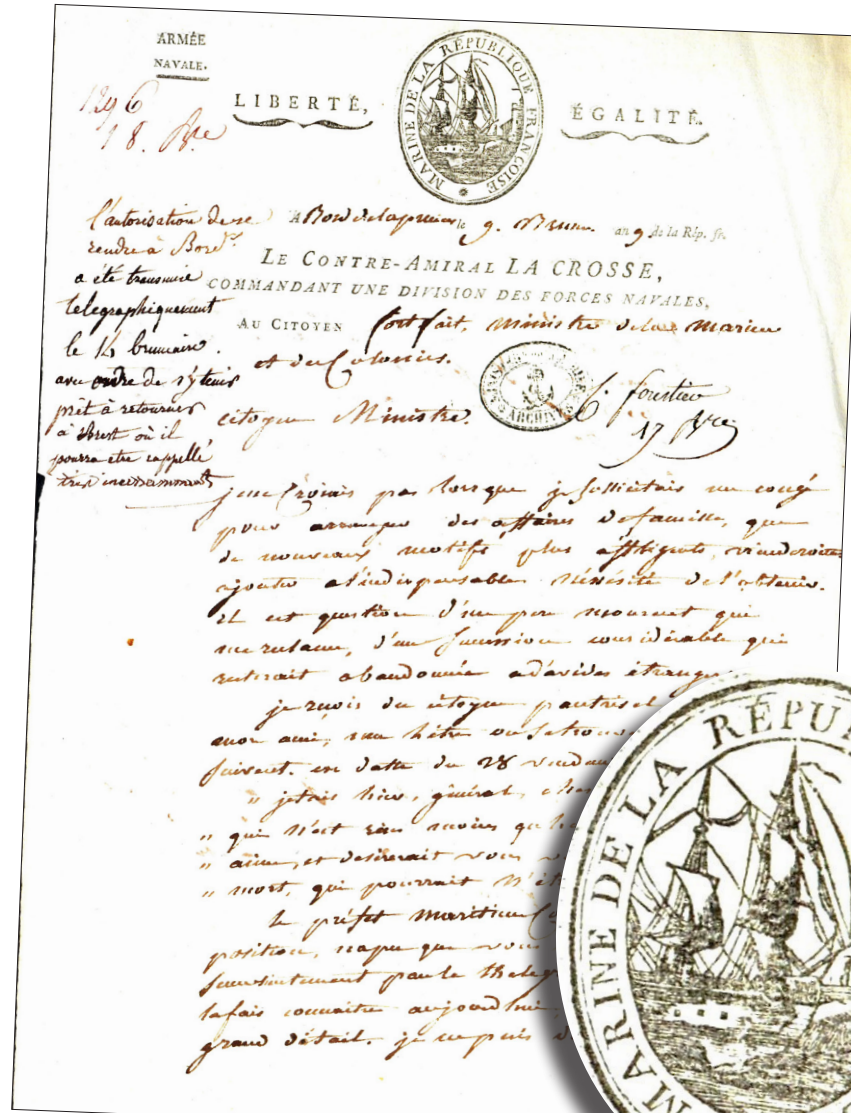 ARMÉE
NAVALE.
1296
18. Bre
LIBERTÉ,
MARINE DE LA RÉPUBLIQUE FRANÇOISE
ÉGALITÉ.
l'autorisation de se
rendre à Bord.x
a été transmise
telegraphiquement
le 14 brumaire.
avec ordre de s'y tenir
prêt à retourner
à Brest où il
pourra etre rappellé
très incessamment
A Bord le 9. Brum. an 9 de la Rép. fr.
LE CONTRE-AMIRAL LA CROSSE,
COMMANDANT UNE DIVISION DES FORCES NAVALES,
AU CITOYEN forfait, Ministre de la Marine
et des Colonies.
ARCHIVES
17 Bre
citoyen Ministre.
je ne croiais pas lorsque je sollicitais un congé
pour arranger des affaires de famille, que
de nouveaux motifs plus affligents, viendroient
ajouter a l'indispensable nésésité de l'obtenir.
il est question d'un pere mourant qui
me reclame, d'une succession considérable qui
resterait abandonnée a d'avides étrang
je reçois du citoyen
mon ami, une lettre ou se trouve
suivant. en datte du 28 vend
" j'etais hier, général, che
" qui n'est rien moins qu
" aime, et desirerait vous v
" mort, qui pourrait n'êt
le préfet maritime
position, que vous
par le
la fais connaitre aujourdhui,
grand détail. je ne puis d
RÉPU
MARINE DE LA